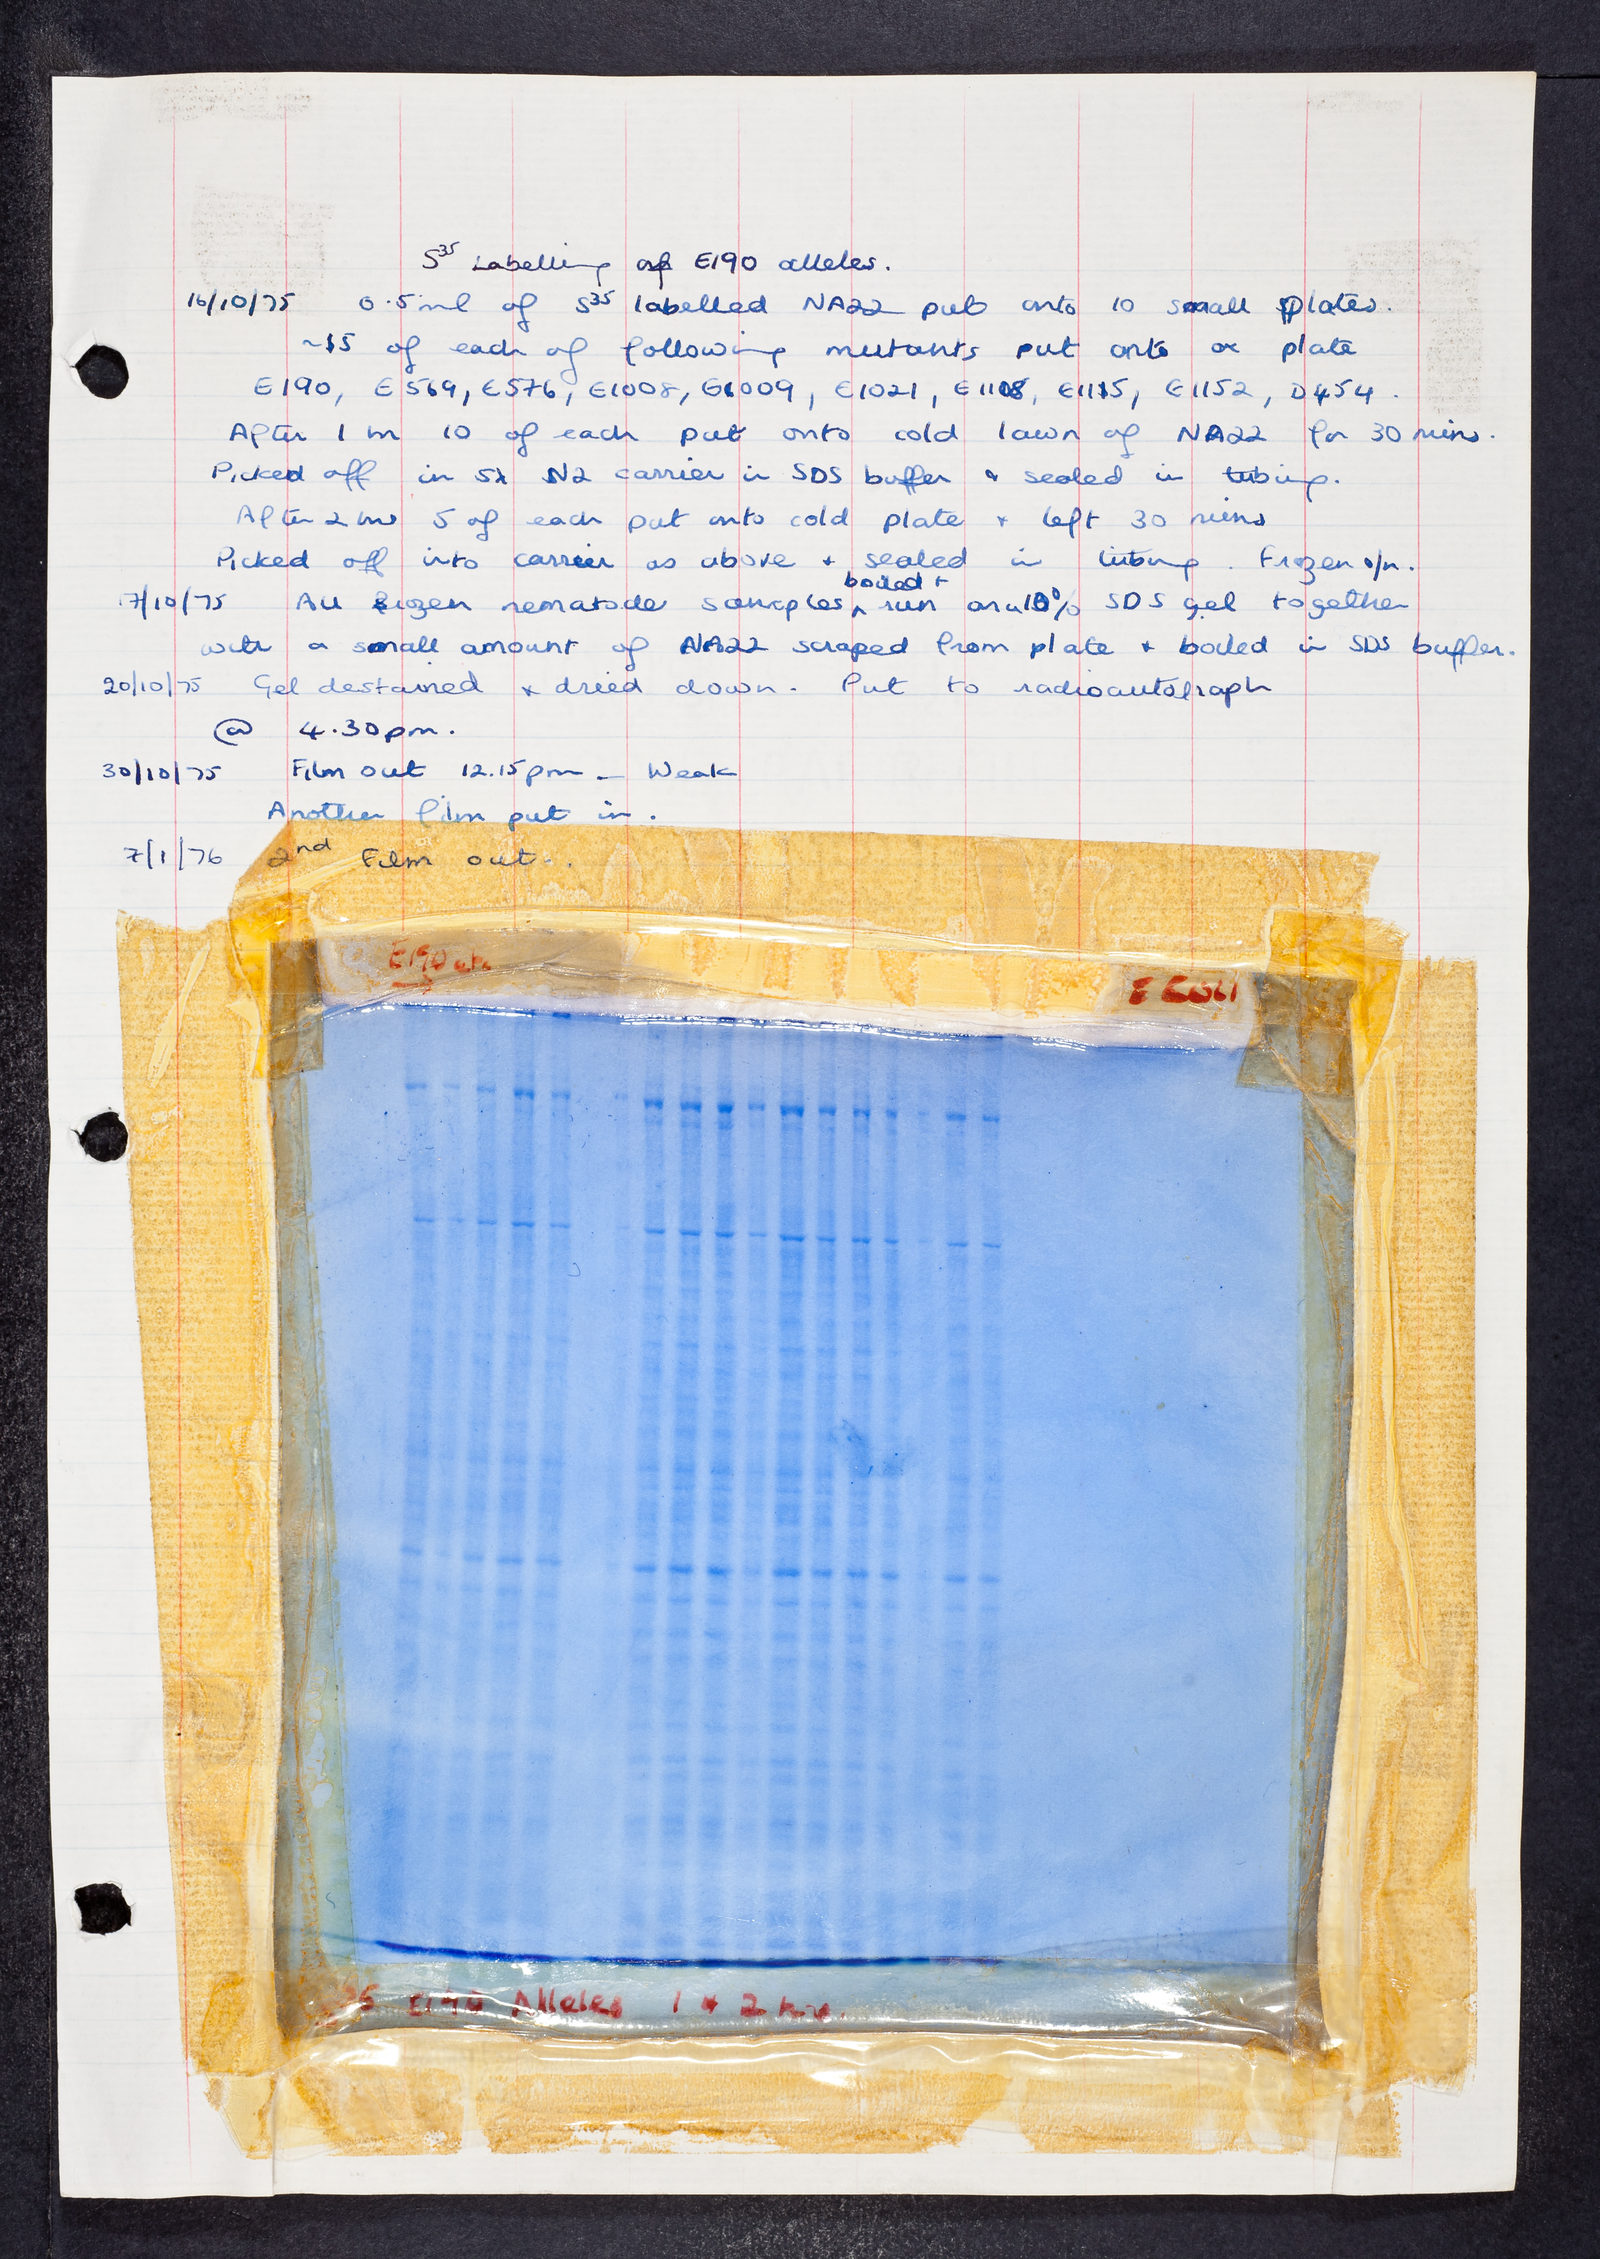 S³⁵ Labelling of E190 alleles.
16/10/75 0.5ml of S³⁵ labelled NA22 put onto 10 small plates.
~15 of each of following mutants put onto a plate
E190, E569, E576, E1008, E1009, E1021, E1108, E1115, E1152, D454.
After 1 hr 10 of each put onto cold lawn of NA22 for 30 mins.
Picked off in 5λ N2 carrier in SDS buffer & sealed in tubing.
After 2 hrs 5 of each put onto cold plate + left 30 mins
Picked off into carrier as above + sealed in tubing. Frozen o/n.
boiled +
17/10/75 All frozen nematode samples ^ run on a 10% SDS gel together
with a small amount of NA22 scraped from plate + boiled in SDS buffer.
20/10/75 Gel destained & dried down. Put to radioautograph
@ 4.30pm.
30/10/75 Film out 12.15pm - Weak
Another film put in.
7/1/76 2nd Film out.
E190
E COLI
E190 Alleles 1 & 2 hr.